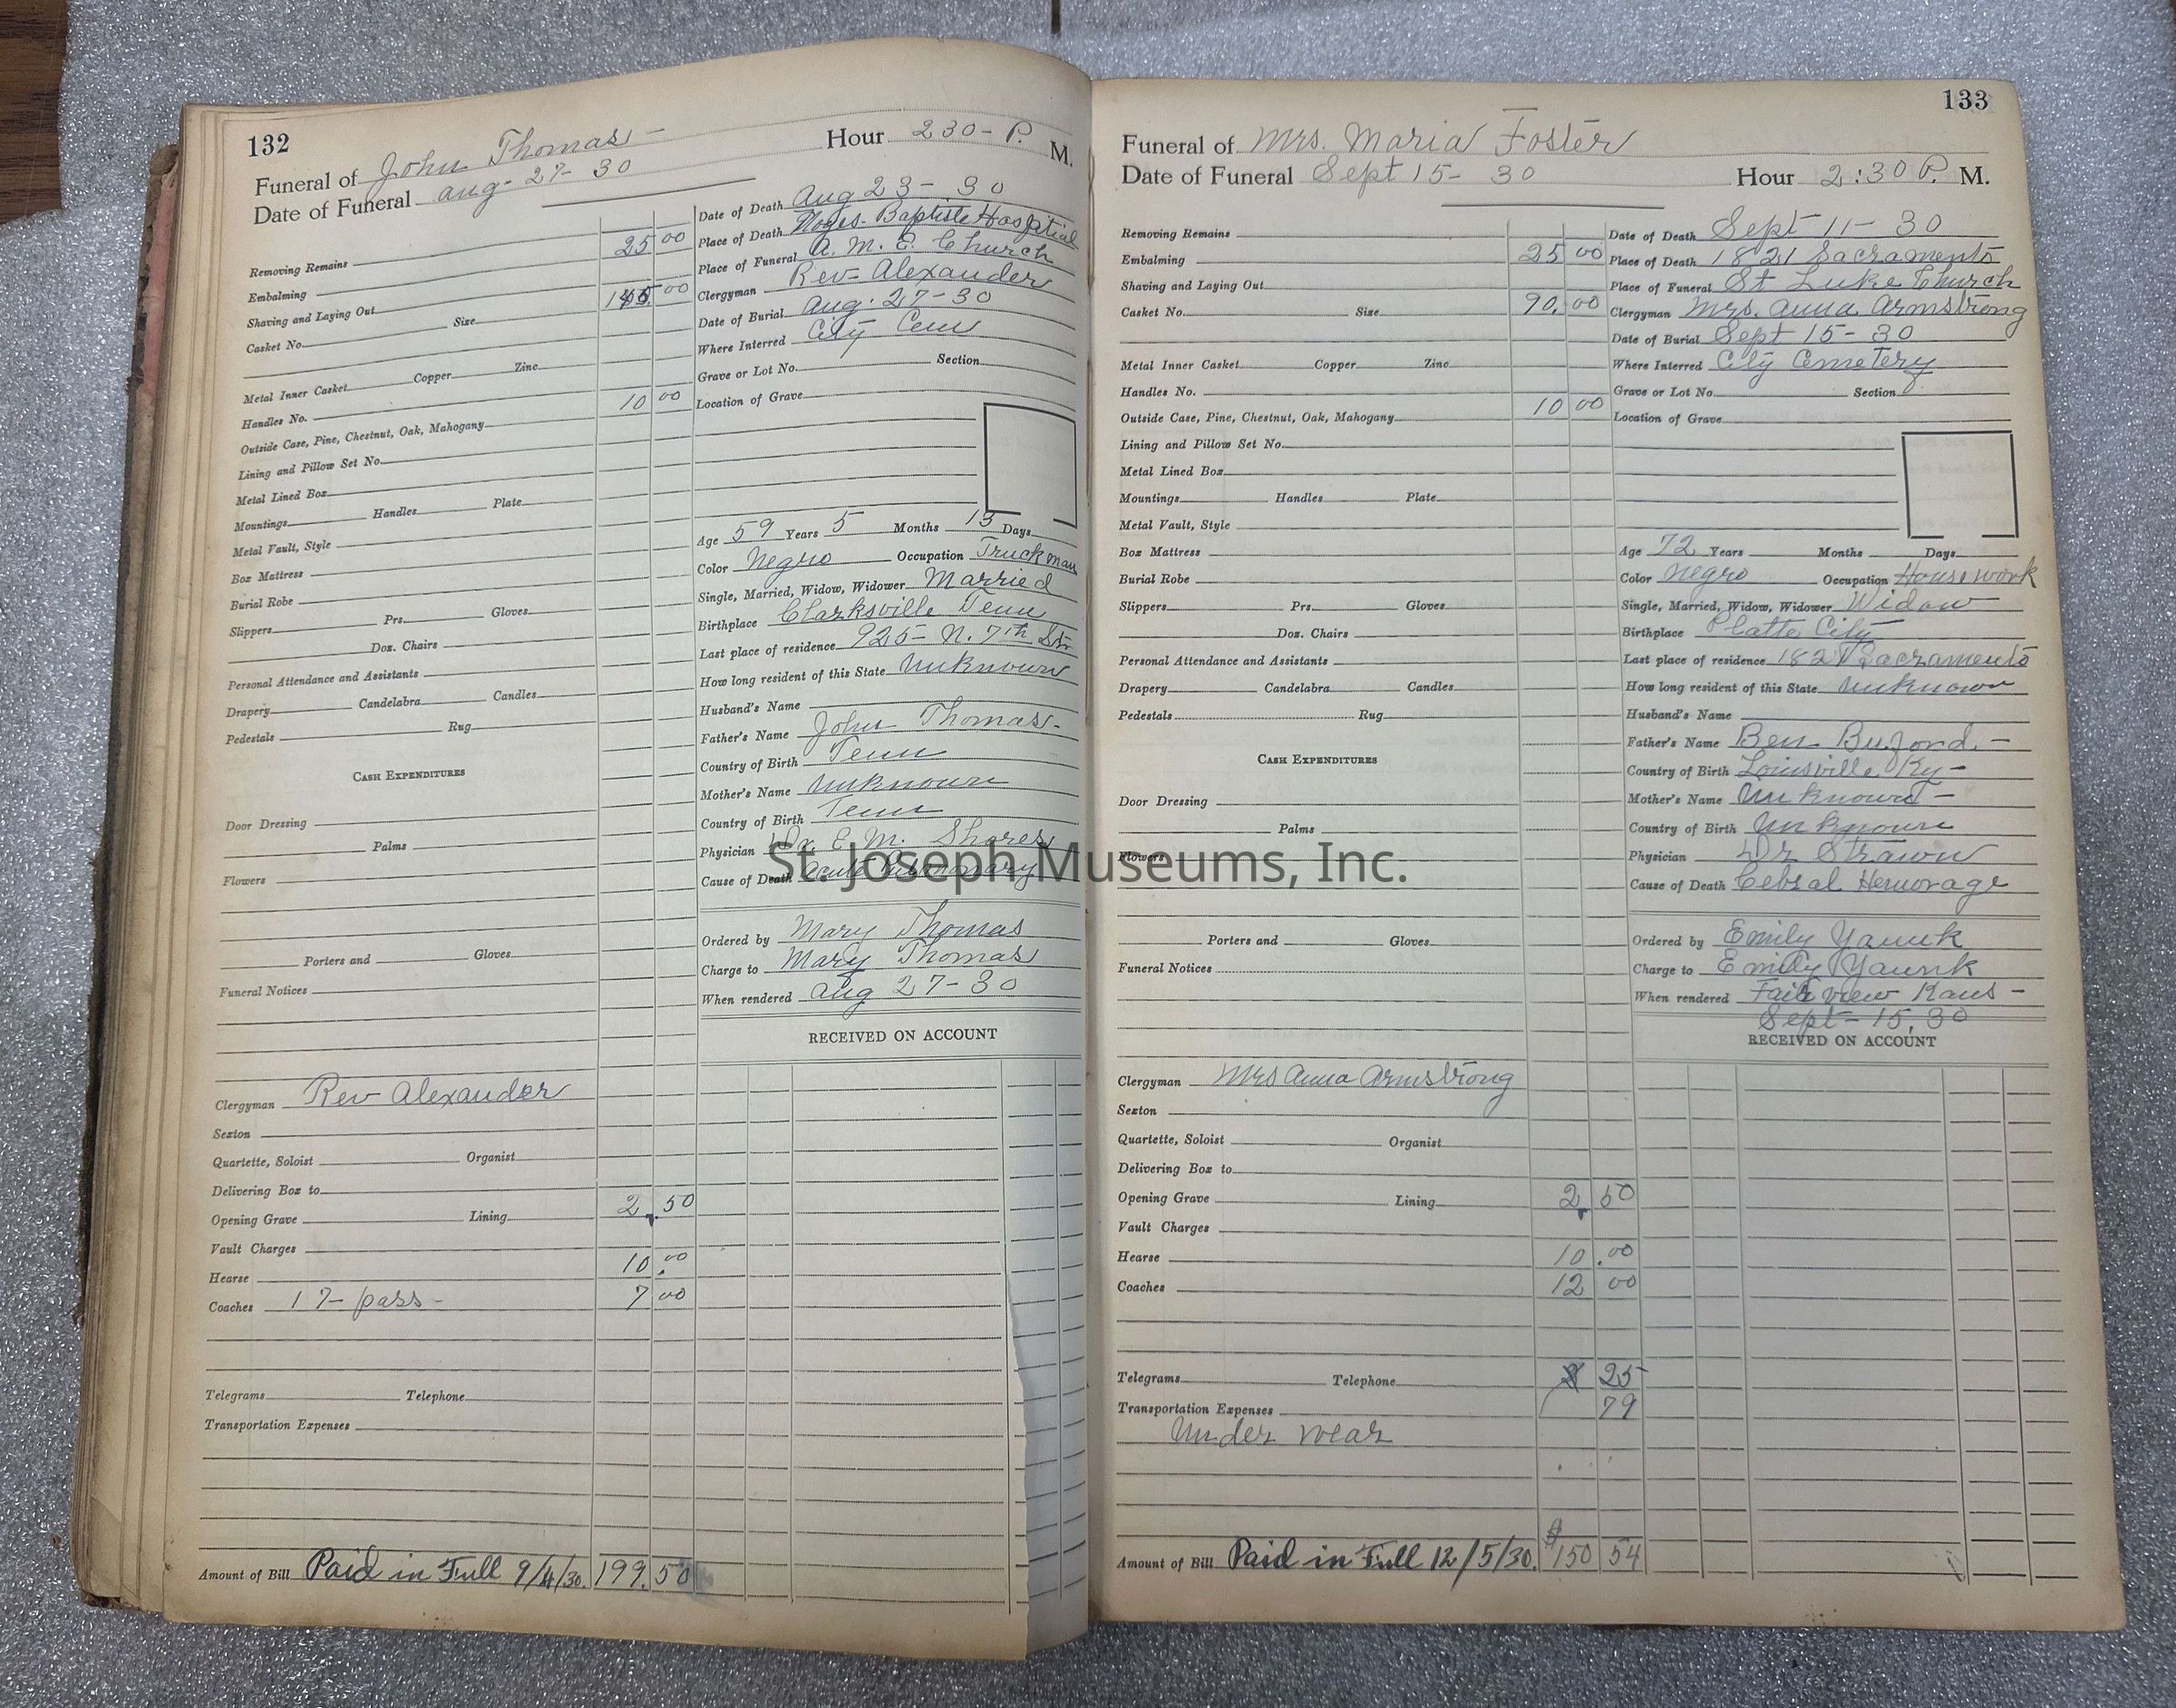 132
Funeral of John Thomas -
Hour 2 30 - P. M.
Date of Funeral Aug - 27 - 30
Removing Remains
Embalming 25 00
Shaving and Laying Out
Casket No. Size 00
Metal Inner Casket Copper Zinc
Handles No.
Outside Case, Pine, Chestnut, Oak, Mahogany 10 00
Lining and Pillow Set No.
Metal Lined Box
Mountings Handles Plate
Metal Vault, Style
Box Mattress
Burial Robe
Slippers Prs. Gloves
Doz. Chairs
Personal Attendance and Assistants
Drapery Candelabra Candles
Pedestals Rug
CASH EXPENDITURES
Door Dressing
Palms
Flowers
Porters and Gloves
Funeral Notices
Clergyman Rev Alexander
Sexton
Quartette, Soloist Organist
Delivering Box to
Opening Grave Lining 2.50
Vault Charges
Hearse 10.00
Coaches 1 7 - pass - 7 00
Telegrams Telephone
Transportation Expenses
Amount of Bill Paid in Full 9/4/30. 199.50
Date of Death Aug 23 - 30
Place of Death Noyes. Baptiste Hospital
Place of Funeral A. M. E. Church
Clergyman Rev Alexander
Date of Burial Aug. 27 - 30
Where Interred City Cem
Grave or Lot No. Section
Location of Grave
Age 59 Years 5 Months 13 Days
Color Negro Occupation Truckman
Single, Married, Widow, Widower Married
Birthplace Clarksville Tenn
Last place of residence 925 - N. 7th St
How long resident of this State Unknown
Husband's Name
Father's Name John Thomas -
Country of Birth Tenn
Mother's Name Unknown
Country of Birth Tenn
Physician Dr E. M. Shores
Cause of Death
Ordered by Mary Thomas
Charge to Mary Thomas
When rendered Aug 27 - 30
RECEIVED ON ACCOUNT
133
Funeral of Mrs. Maria Foster
Date of Funeral Sept 15 - 30 Hour 2:30 P. M.
Removing Remains
Embalming 25 00
Shaving and Laying Out
Casket No. Size 90.00
Metal Inner Casket Copper Zinc
Handles No.
Outside Case, Pine, Chestnut, Oak, Mahogany 10 00
Lining and Pillow Set No.
Metal Lined Box
Mountings Handles Plate
Metal Vault, Style
Box Mattress
Burial Robe
Slippers Prs. Gloves
Doz. Chairs
Personal Attendance and Assistants
Drapery Candelabra Candles
Pedestals Rug
CASH EXPENDITURES
Door Dressing
Palms
Flowers
Porters and Gloves
Funeral Notices
Clergyman Mrs Anna Armstrong
Sexton
Quartette, Soloist Organist
Delivering Box to
Opening Grave Lining 2.50
Vault Charges
Hearse 10.00
Coaches 12 00
Telegrams Telephone 25
Transportation Expenses 79
Under wear
Amount of Bill Paid in Full 12/5/30. $150 54
Date of Death Sept 11 - 30
Place of Death 1821 Sacramento
Place of Funeral St Luke Church
Clergyman Mrs. Anna Armstrong
Date of Burial Sept 15 - 30
Where Interred City Cemetery
Grave or Lot No. Section
Location of Grave
Age 72 Years Months Days
Color Negro Occupation Housework
Single, Married, Widow, Widower Widow
Birthplace Platte City
Last place of residence 1821 Sacramento
How long resident of this State Unknown
Husband's Name
Father's Name Ben Buford. -
Country of Birth Louisville Ky -
Mother's Name Unknown -
Country of Birth Unknown
Physician Dr Strawn
Cause of Death Cebral Hemorage
Ordered by Emily
Charge to Emily
When rendered Fair view Kans -
Sept - 15, 30
RECEIVED ON ACCOUNT
St. Joseph Museums, Inc.